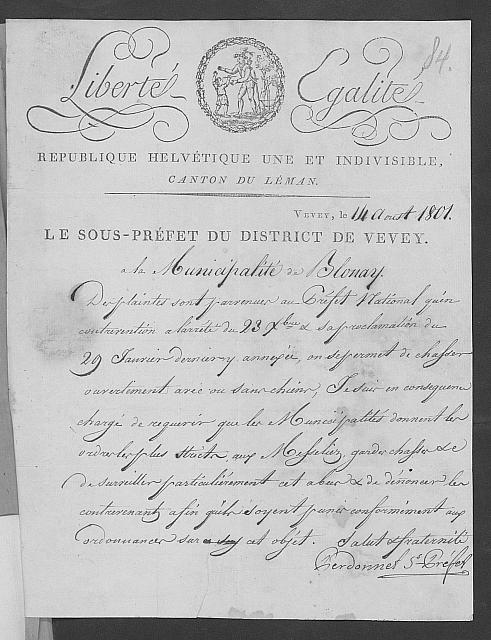 84.
Liberté Egalité
REPUBLIQUE HELVÉTIQUE UNE ET INDIVISIBLE,
CANTON DU LÉMAN.
VEVEY, le 14 Aoust 1801.
LE SOUS-PRÉFET DU DISTRICT DE VEVEY.
a la Municipalité de Blonay.
Des plaintes sont parvenues au Préfet National qu'en
contravention a larrêté du 23 Xbre & sa proclamation du
29 Janvier dernier y annexée, on se permet de chasser
ouvertement avec ou sans chiens, Je suis en consequence
chargé de requerir que les Municipalités donnent les
ordres les plus stricts, aux Messeliers, gardes chasses &c
de surveiller particuliérement cet abus & de dénoncer les
contrevenants afin qu'ils soyent punis conformément aux
ordonnances sur cet objet. Salut & fraternité
Perdonnet St. Préfet